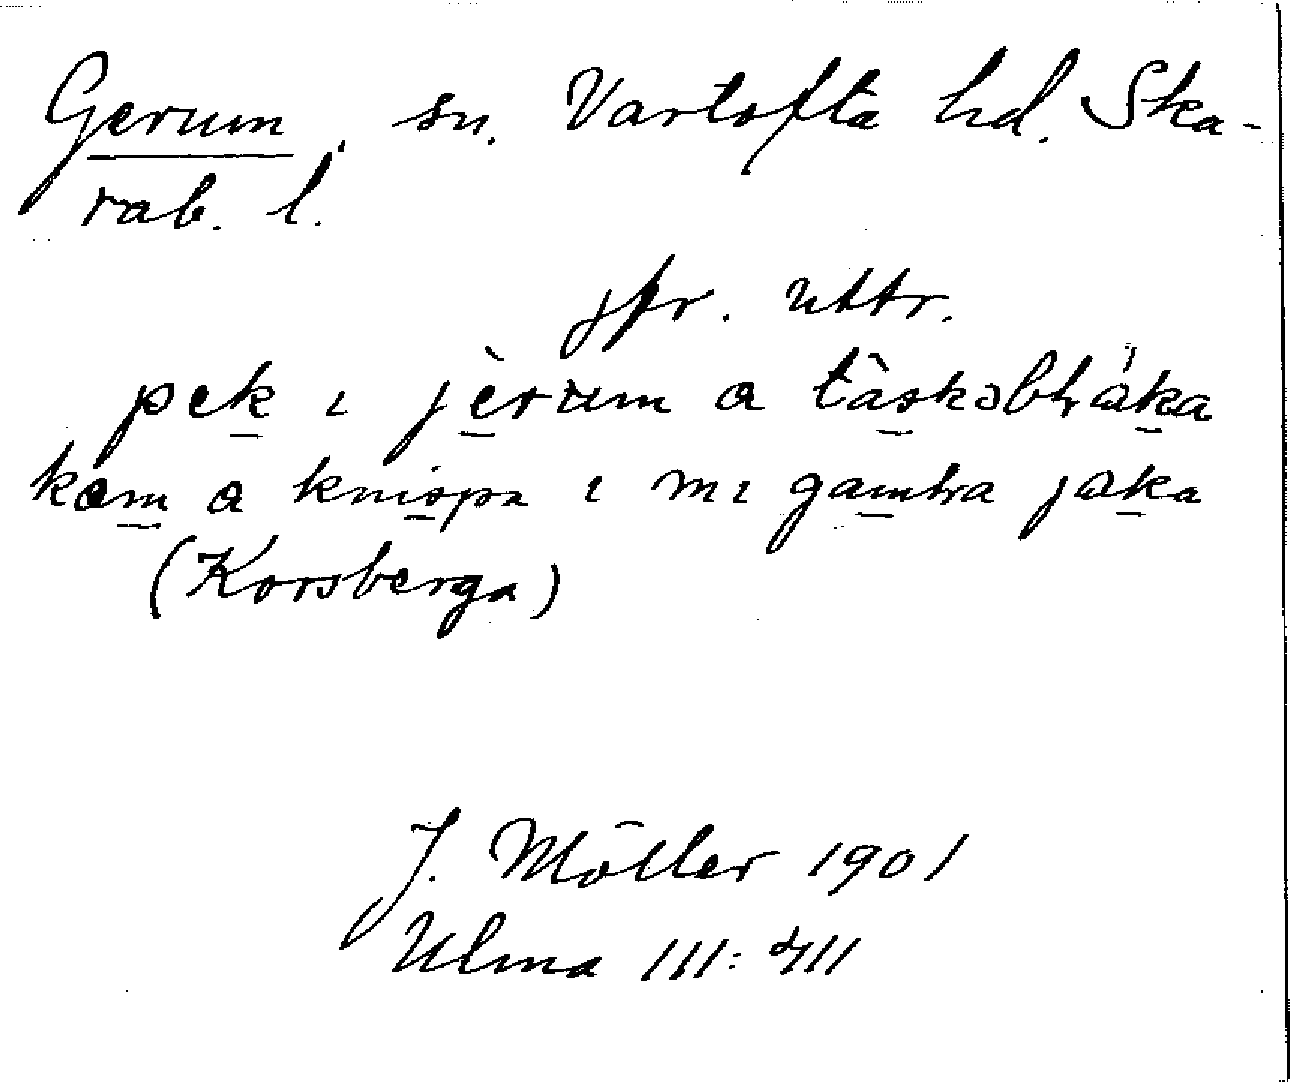 Gerum, sn. Vartofta hd. Ska-
rab. l.
jfr. uttr.
pek ı jèrum a tàskəbɫáka
kam a knispa ı mı gamɫa jaka
(Korsberga)
J. Möller 1901
Ulma 111:411